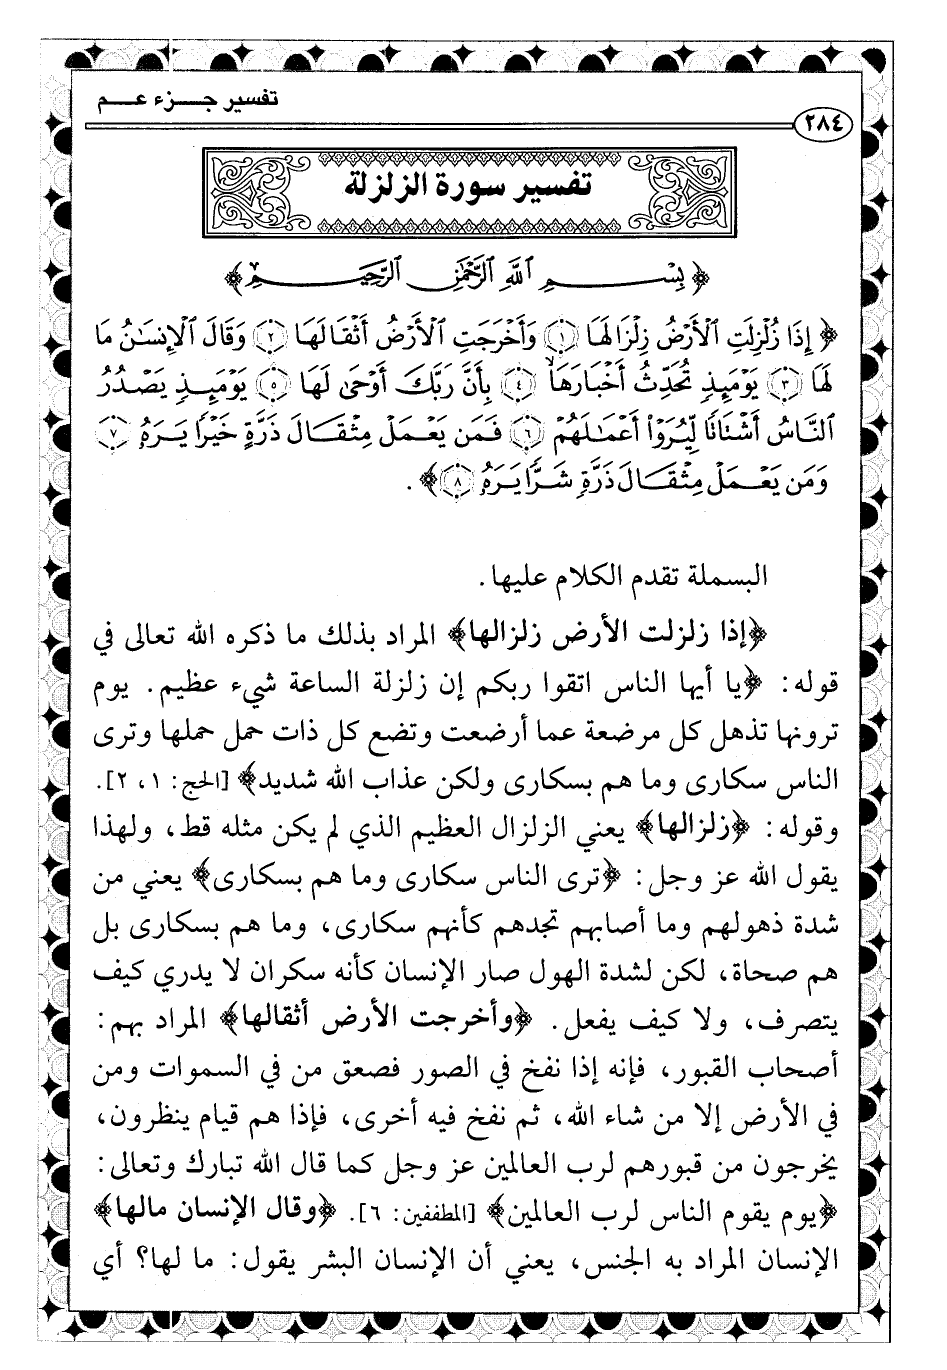 تفسير جزء عم
٢٨٤
تفسير سورة الزلزلة
﴿بِسْمِ اللَّهِ الرَّحْمَٰنِ الرَّحِيمِ﴾
﴿إِذَا زُلْزِلَتِ الْأَرْضُ زِلْزَالَهَا ١ وَأَخْرَجَتِ الْأَرْضُ أَثْقَالَهَا ٢ وَقَالَ الْإِنسَانُ مَا
لَهَا ٣ يَوْمَئِذٍ تُحَدِّثُ أَخْبَارَهَا ٤ بِأَنَّ رَبَّكَ أَوْحَىٰ لَهَا ٥ يَوْمَئِذٍ يَصْدُرُ
النَّاسُ أَشْتَاتًا لِّيُرَوْا أَعْمَالَهُمْ ٦ فَمَن يَعْمَلْ مِثْقَالَ ذَرَّةٍ خَيْرًا يَرَهُ ٧
وَمَن يَعْمَلْ مِثْقَالَ ذَرَّةٍ شَرًّا يَرَهُ ٨﴾.
البسملة تقدم الكلام عليها.
﴿إذا زلزلت الأرض زلزالها﴾ المراد بذلك ما ذكره الله تعالى في
قوله: ﴿يا أيها الناس اتقوا ربكم إن زلزلة الساعة شيء عظيم. يوم
ترونها تذهل كل مرضعة عما أرضعت وتضع كل ذات حمل حملها وترى
الناس سكارى وما هم بسكارى ولكن عذاب الله شديد﴾ [الحج: ١، ٢].
وقوله: ﴿زلزالها﴾ يعني الزلزال العظيم الذي لم يكن مثله قط، ولهذا
يقول الله عز وجل: ﴿ترى الناس سكارى وما هم بسكارى﴾ يعني من
شدة ذهولهم وما أصابهم تجدهم كأنهم سكارى، وما هم بسكارى بل
هم صحاة، لكن لشدة الهول صار الإنسان كأنه سكران لا يدري كيف
يتصرف، ولا كيف يفعل. ﴿وأخرجت الأرض أثقالها﴾ المراد بهم:
أصحاب القبور، فإنه إذا نفخ في الصور فصعق من في السموات ومن
في الأرض إلا من شاء الله، ثم نفخ فيه أخرى، فإذا هم قيام ينظرون،
يخرجون من قبورهم لرب العالمين عز وجل كما قال الله تبارك وتعالى:
﴿يوم يقوم الناس لرب العالمين﴾ [المطففين: ٦]. ﴿وقال الإنسان مالها﴾
الإنسان المراد به الجنس، يعني أن الإنسان البشر يقول: ما لها؟ أي